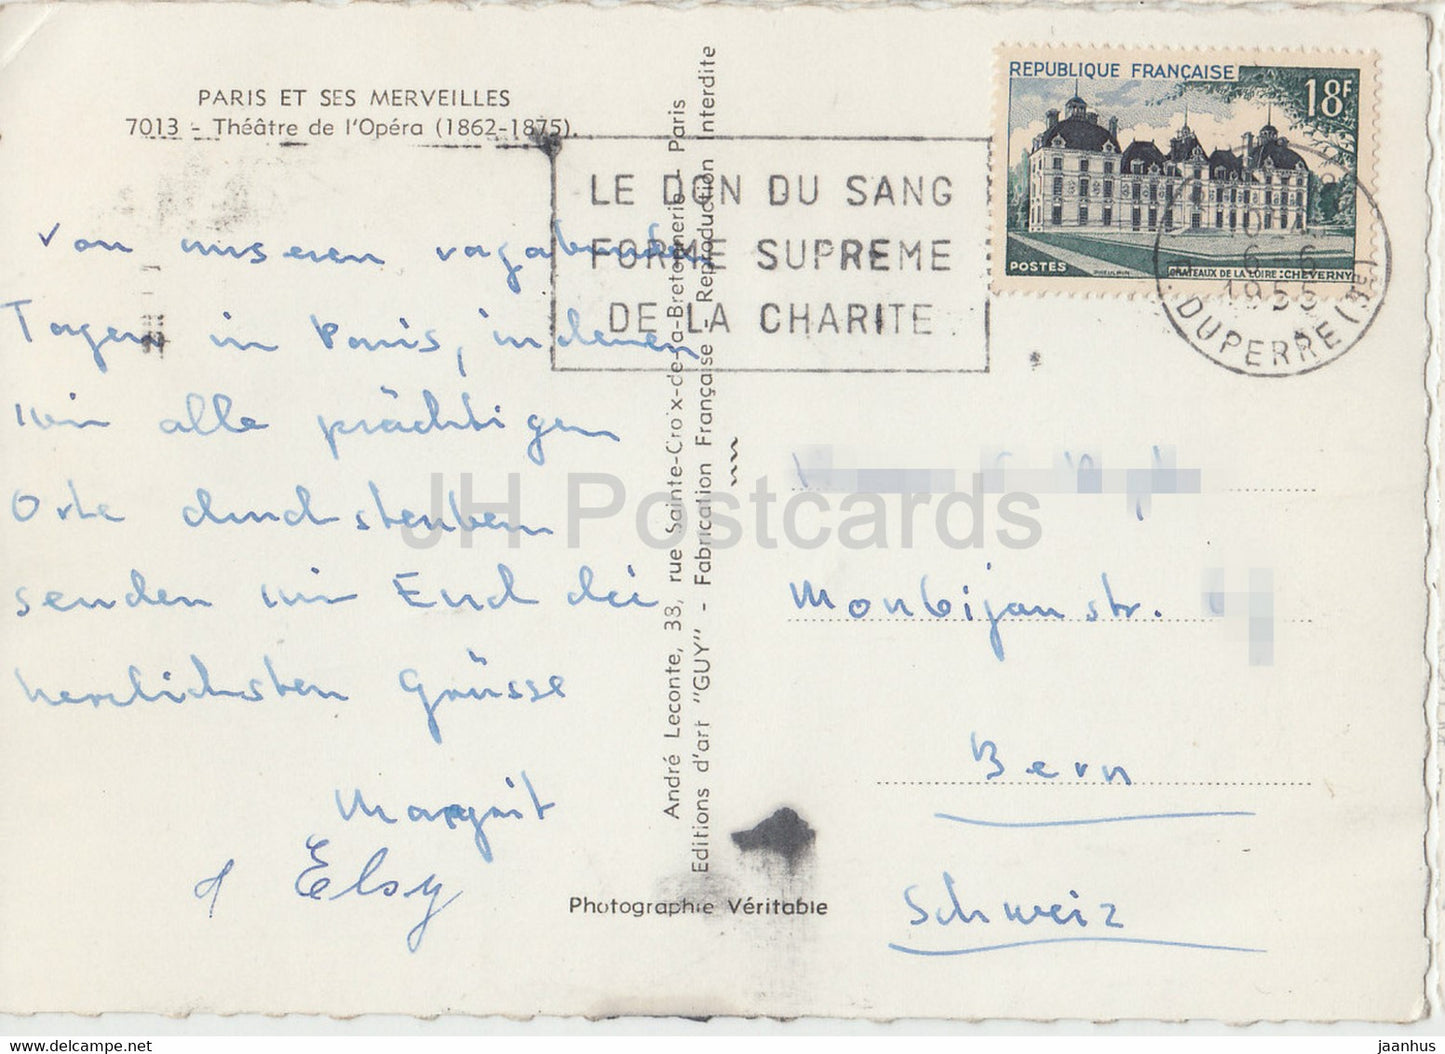 PARIS ET SES MERVEILLES
7013 - Théâtre de l'Opéra (1862-1875).
Von unseren vagabunden
Tagen in Paris, in denen
wir alle prächtigen
Orte durchstreubern
senden wir Euch die
herzlichsten Grüsse
Margrit
Elsy
André Leconte, 38, rue Sainte-Croix-de-la-Bretonnerie - Paris
Editions d'art "GUY" - Fabrication Française - Reproduction Interdite
Photographie Véritable
LE DON DU SANG
FORME SUPREME
DE LA CHARITE
REPUBLIQUE FRANÇAISE
18F
POSTES
CHATEAUX DE LA LOIRE: CHEVERNY
6-6
1955
DUPERRE (9e)
Monbijoustr.
Bern
Schweiz
JH Postcards
www.delcampe.net
jaanhus